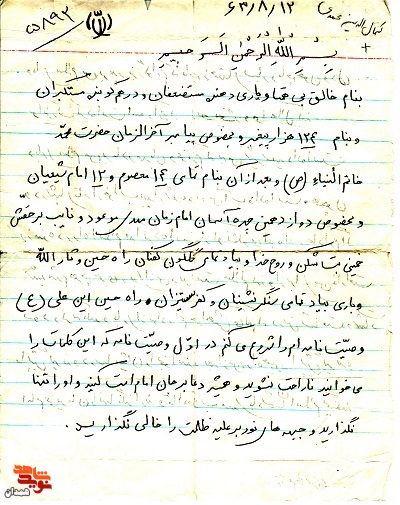 ۶۳/۸/۱۲
۵۸۹۲
بِسْمِ اللهِ الرَّحْمٰنِ الرَّحیمِ
بنام خالق بی همتا و یاری دهنده مستضعفان و درهم کوبنده مستکبران
و بنام ۱۲۴ هزار پیغمبر و بخصوص پیامبر آخرالزمان حضرت محمد
خاتم الانبیاء (ص) و بعد از آن بنام تمامی ۱۴ معصوم و ۱۲ امام شیعیان
و بخصوص دوازدهمین امام زمان مهدی موعود و نایب برحقش
خمینی بت شکن و روح خدا و بیاد تمامی گلگون کفنان راه حسین و ثار الله
و یاری بیاد تمامی سنگرنشینان و کفرستیزان راه حسین ابن علی (ع)
وصیت نامه ام را شروع می کنم در اول وصیت نامه که این کلمات را
می خوانید ناراحت نشوید و همیشه دعا بر جان امام امت کنید و او را تنها
نگذارید و جبهه های نور بر علیه ظلمت را خالی نگذارید.
نوید شاهد